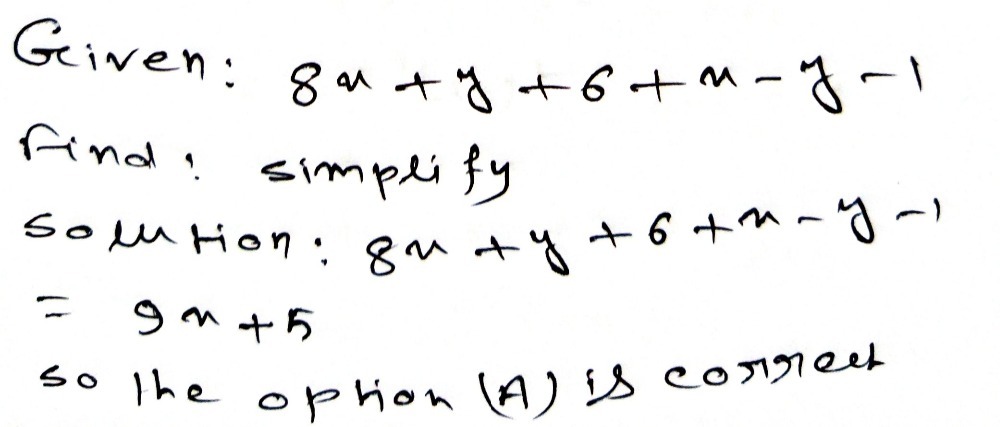 Given: 8x + y + 6 + x - y - 1
Find: simplify
Solution: 8x + y + 6 + x - y - 1
= 9x + 5
so the option (A) is correct